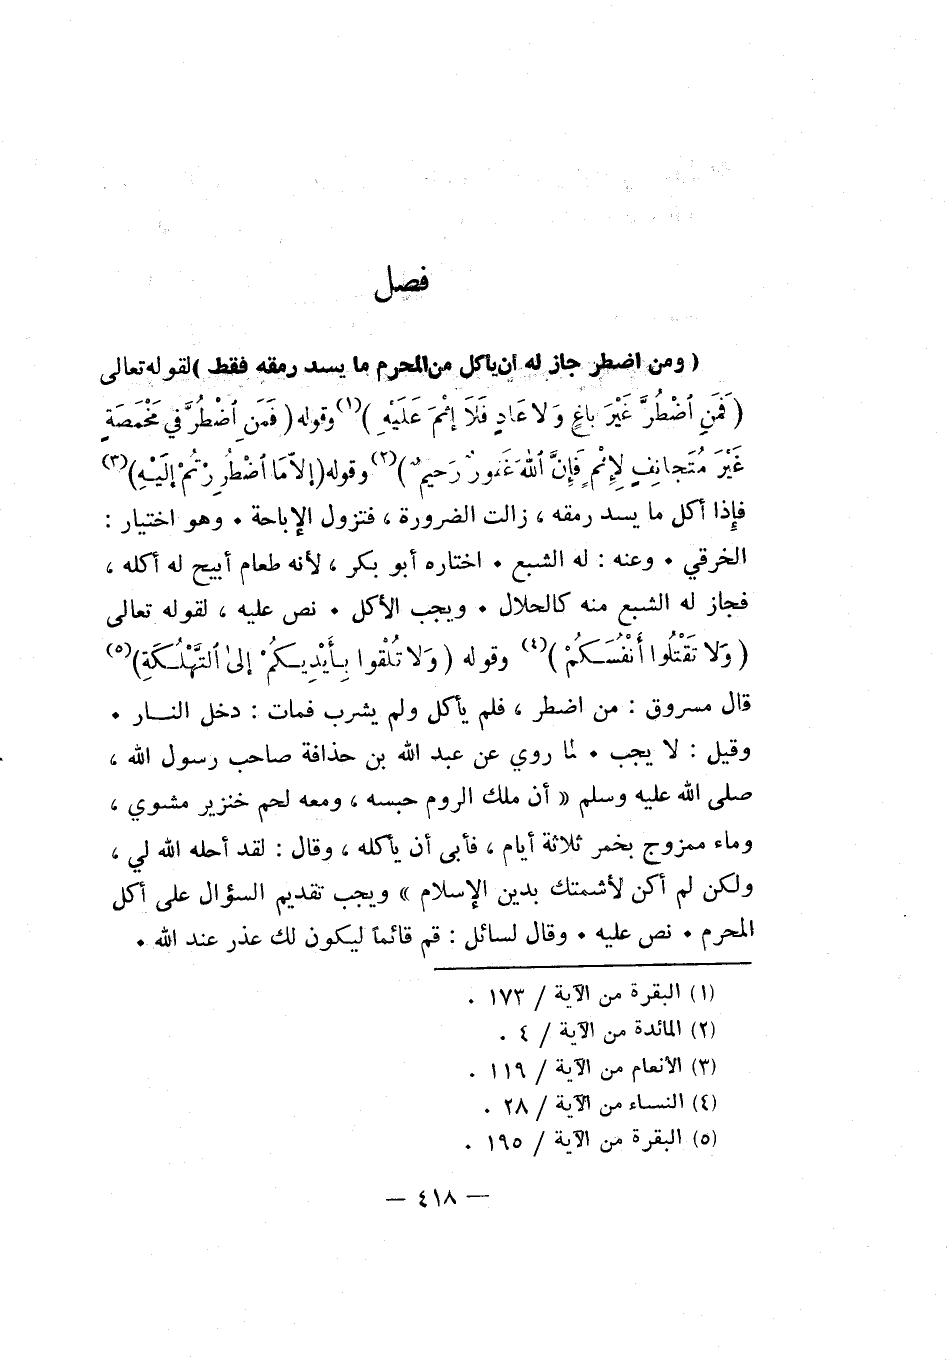 فصل
( ومن اضطر جاز له أن يأكل من المحرم ما يسد رمقه فقط ) لقوله تعالى
( فَمَنِ ٱضْطُرَّ غَيْرَ بَاغٍ وَلَا عَادٍ فَلَا إِثْمَ عَلَيْهِ )(١) وقوله ( فَمَنِ ٱضْطُرَّ فِي مَخْمَصَةٍ
غَيْرَ مُتَجانِفٍ لِإِثْمٍ فَإِنَّ ٱللهَ غَفورٌ رَحيمٌ )(٢) وقوله ( إلَّا مَا ٱضْطُرِرْتُمْ إِلَيْهِ )(٣)
فإذا أكل ما يسد رمقه ، زالت الضرورة ، فتزول الإباحة ٠ وهو اختيار :
الخرقي ٠ وعنه : له الشبع ٠ اختاره أبو بكر ، لأنه طعام أبيح له أكله ،
فجاز له الشبع منه كالحلال ٠ ويجب الأكل ٠ نص عليه ، لقوله تعالى
( وَلا تَقْتُلُوا أَنْفُسَكُمْ )(٤) وقوله ( وَلا تُلْقوا بِأَيْدِيكُمْ إلىٰ ٱلتَّهْلُكَةِ )(٥)
قال مسروق : من اضطر ، فلم يأكل ولم يشرب فمات : دخل النـار ٠
وقيل : لا يجب ٠ لما روي عن عبد الله بن حذافة صاحب رسول الله ،
صلى الله عليه وسلم « أن ملك الروم حبسه ، ومعه لحم خنزير مشوي ،
وماء ممزوج بخمر ثلاثة أيام ، فأبى أن يأكله ، وقال : لقد أحله الله لي ،
ولكن لم أكن لأشمتك بدين الإسلام » ويجب تقديم السؤال على أكل
المحرم ٠ نص عليه ٠ وقال لسائل : قم قائماً ليكون لك عذر عند الله ٠
(١) البقرة من الآية / ١٧٣ .
(٢) المائدة من الآية / ٤ .
(٣) الأنعام من الآية / ١١٩ .
(٤) النساء من الآية / ٢٨ .
(٥) البقرة من الآية / ١٩٥ .
— ٤١٨ —